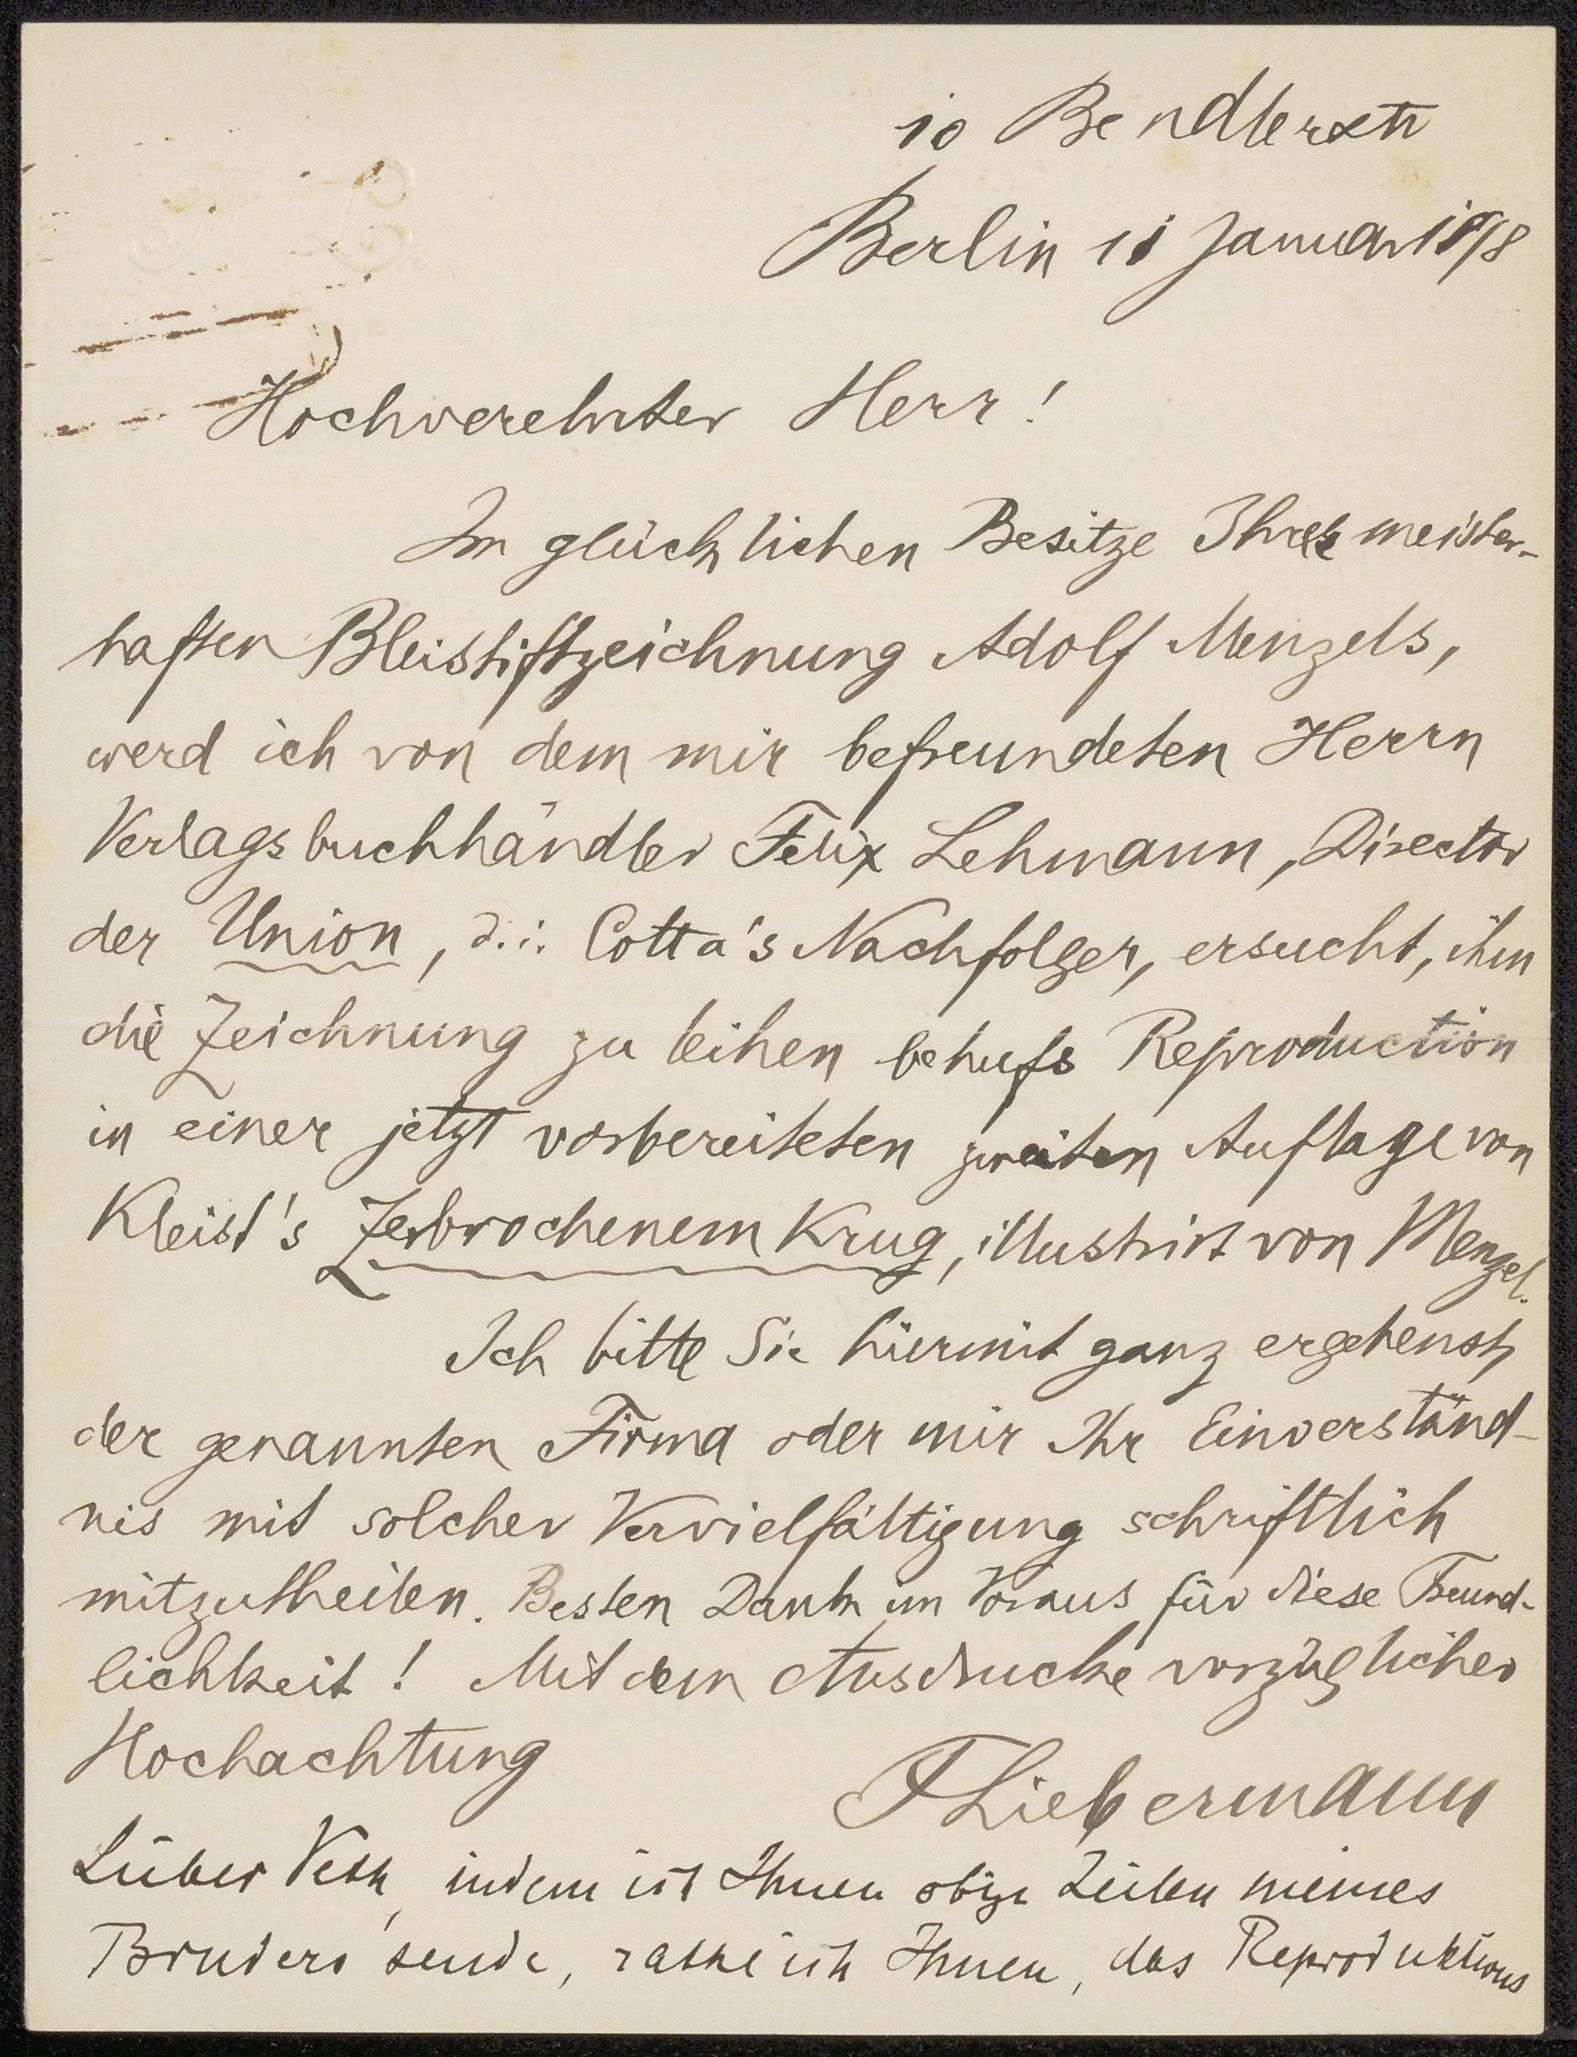 10 Bendlerstr
Berlin 11 Januar 1898
Hochverehrter Herr!
Im glücklichen Besitze Ihrer meister-
haften Bleistiftzeichnung Adolf Menzels,
werd ich von dem mir befreundeten Herrn
Verlagsbuchhändler Felix Lehmann, Director
der Union, d. i. Cotta's Nachfolger, ersucht, ihm
die Zeichnung zu leihen behufs Reproduction
in einer jetzt vorbereiteten zweiten Auflage von
Kleist's Zerbrochenem Krug, illustrirt von Menzel.
Ich bitte Sie hiermit ganz ergebenst,
der genannten Firma oder mir Ihr Einverständ-
nis mit solcher Vervielfältigung schriftlich
mitzutheilen. Besten Dank im Voraus für diese Freund-
lichkeit! Mit dem Ausdrucke vorzüglicher
Hochachtung
FLiebermann
Lieber Veth, indem ich Ihnen obige Zeilen meines
Bruders sende, rathe ich Ihnen, das Reproduktions